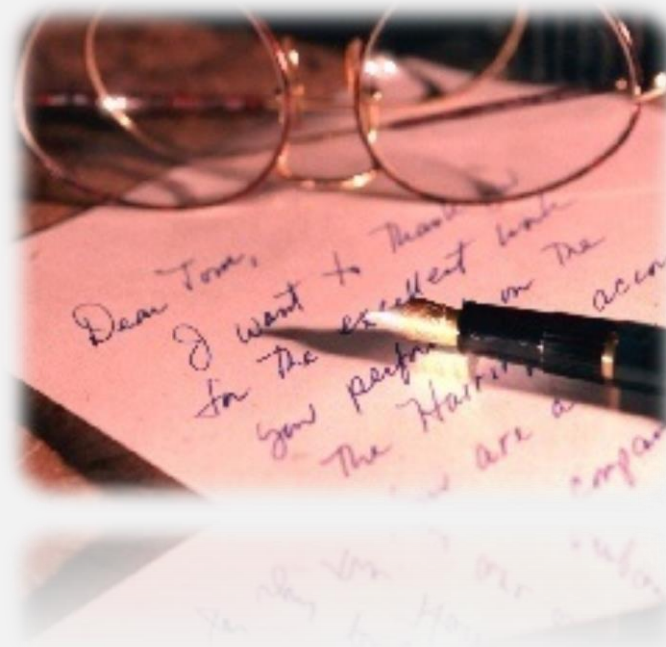 Dear Tom,
I want to Thank
for The excellent work
you perfor on The
The Hairin accou
are a
compan